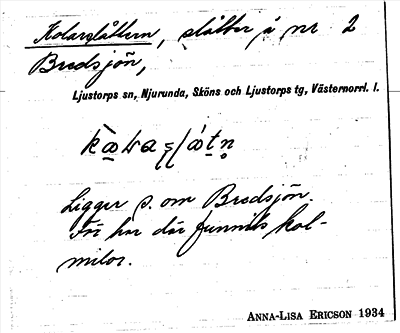 Kolarslåtten, slåtter å nr 2
Bredsjön,
Ljustorps sn, Njurunda, Sköns och Ljustorps tg, Västernorrl. l.
Ligger s. om Bredsjön.
Förr har där funnits kol-
milor.
ANNA-LISA ERICSON 1934